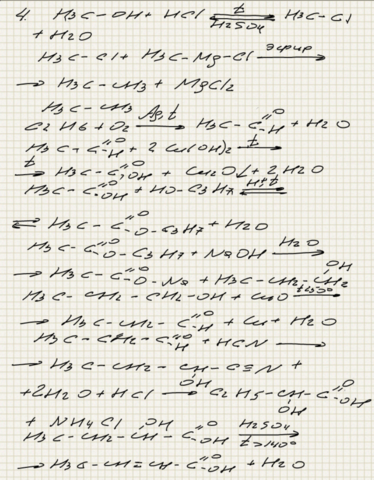 4. H3C-OH + HCl ⇄ H3C-Cl
t
H2SO4
+ H2O
H3C-Cl + H3C-Mg-Cl эфир →
→ H3C-CH3 + MgCl2
H3C-CH3
C2H6 + O2 Ag,t → H3C-C=O-H + H2O
H3C-C=O-H + 2Cu(OH)2 t →
→ H3C-C=O-OH + Cu2O↓ + 2H2O
H3C-C=O-OH + HO-C3H7 H+,t ⇄
⇄ H3C-C=O-O-C3H7 + H2O
H3C-C=O-O-C3H7 + NaOH H2O →
→ H3C-C=O-O-Na + H3C-CH2-CH2-OH
H3C-CH2-CH2-OH + CuO →
→ H3C-CH2-C=O-H + Cu + H2O
H3C-CH2-C=O-H + HCN →
→ H3C-CH2-CH-C≡N +
OH
+2H2O + HCl → C2H5-CH-C=O-OH
OH
+ NH4Cl
H3C-CH2-CH(OH)-C=O-OH H2SO4 t>140° →
→ H3C-CH=CH-C=O-OH + H2O